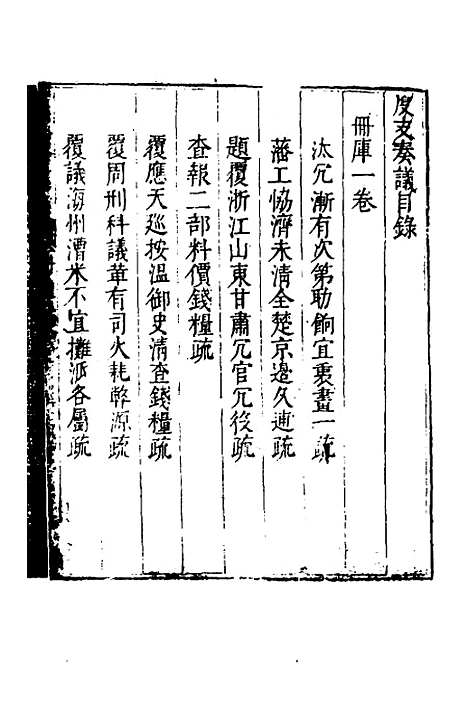 度支奏議目錄
冊庫一卷
汰冗漸有次第助餉宜裏畫一疏
藩工協濟未清全楚京邊久逋疏
題覆浙江山東甘肅冗官冗役疏
查報二部料價錢糧疏
覆應天巡按溫御史清查錢糧疏
覆周刑科議革有司火耗弊源疏
覆議海州漕米不宜攤派各屬疏